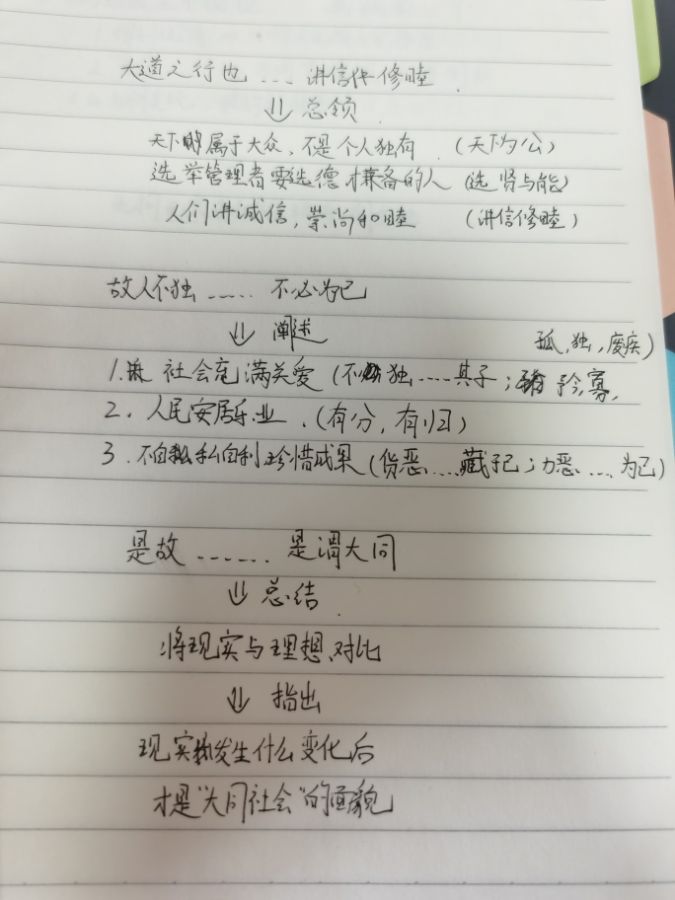 大道之行也....讲信修睦.
⇓ 总领
天下属于大众、不是个人独有 (天下为公)
选举管理者要选德才兼备的人 (选贤与能)
人们讲诚信,崇尚和睦 (讲信修睦)
故人不独...... 不必为己
⇓ 阐述
孤,独,废疾)
1.社会充满关爱 (不独.....其子;矜寡,
2. 人民安居乐业.(有分,有归)
3.不自私自利珍惜成果(货恶....藏于己;力恶....为己)
是故....... 是谓大同
⇓ 总结
将现实与理想、对比
⇓ 指出
现实发生什么变化后
才是“大同社会”的面貌